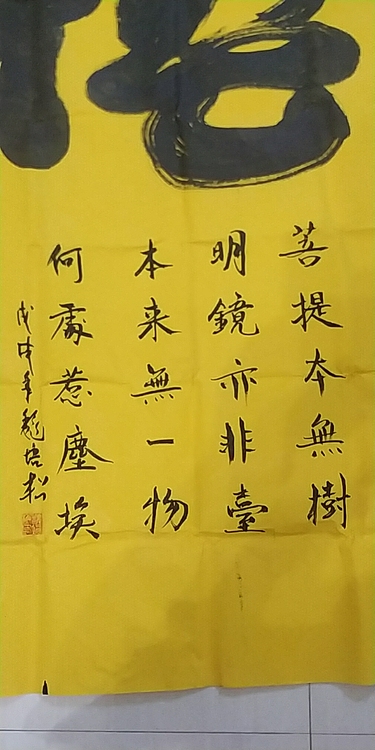 菩提本無樹
明鏡亦非臺
本来無一物
何處惹塵埃
戊戌年培松